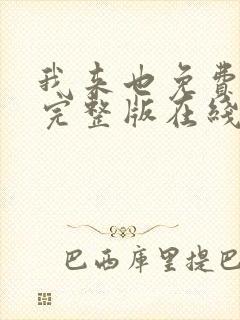 我来也免费
完整版在线
巴西库里提巴